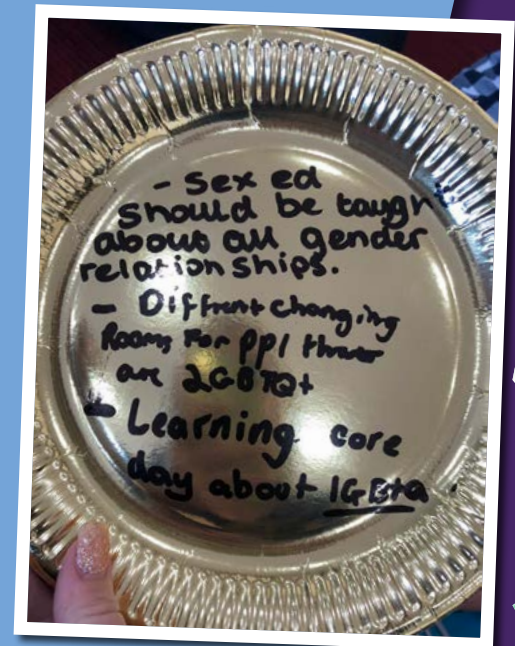 - Sex ed
should be taugh
about all gender
relationships.
- Diffrent changing
Rooms for ppl
are LGBTQ+
- Learning core
day about lGBtq